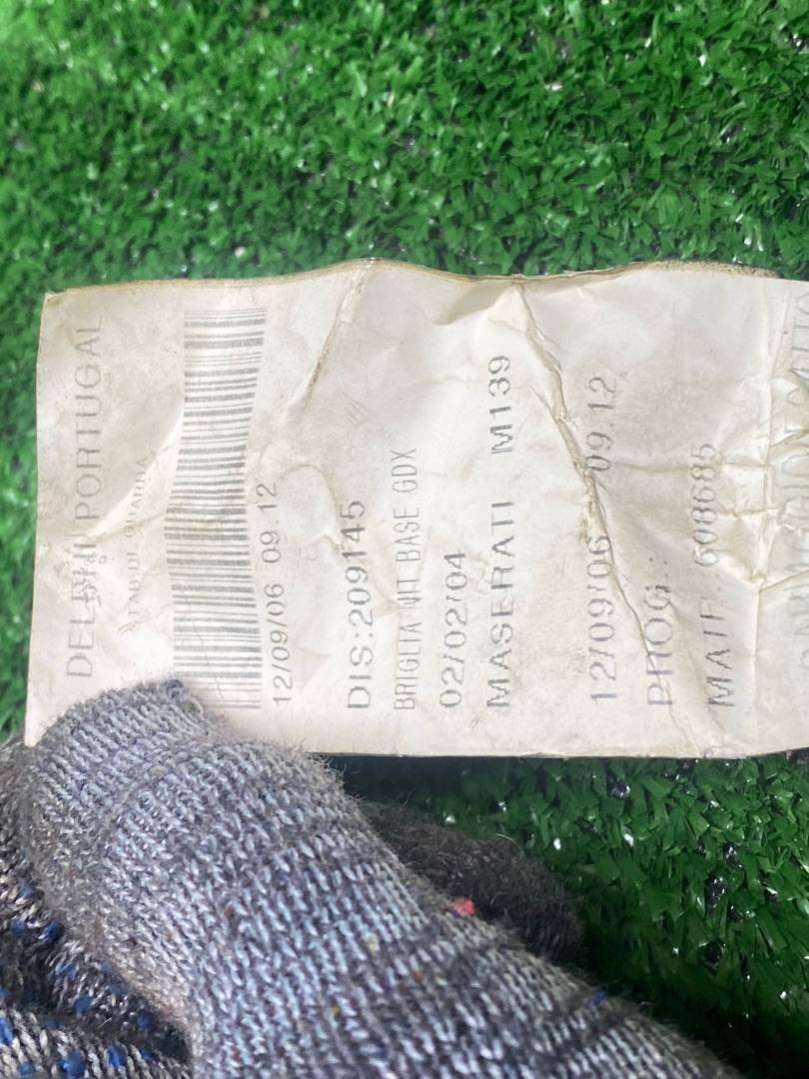 DELPHI PORTUGAL
12/09/06 09.12
DIS:209145
BRIGLIA NIT BASE GDX
02/02/04
MASERATI M139
12/09/06 09.12
PROG.:
MATF: 608685